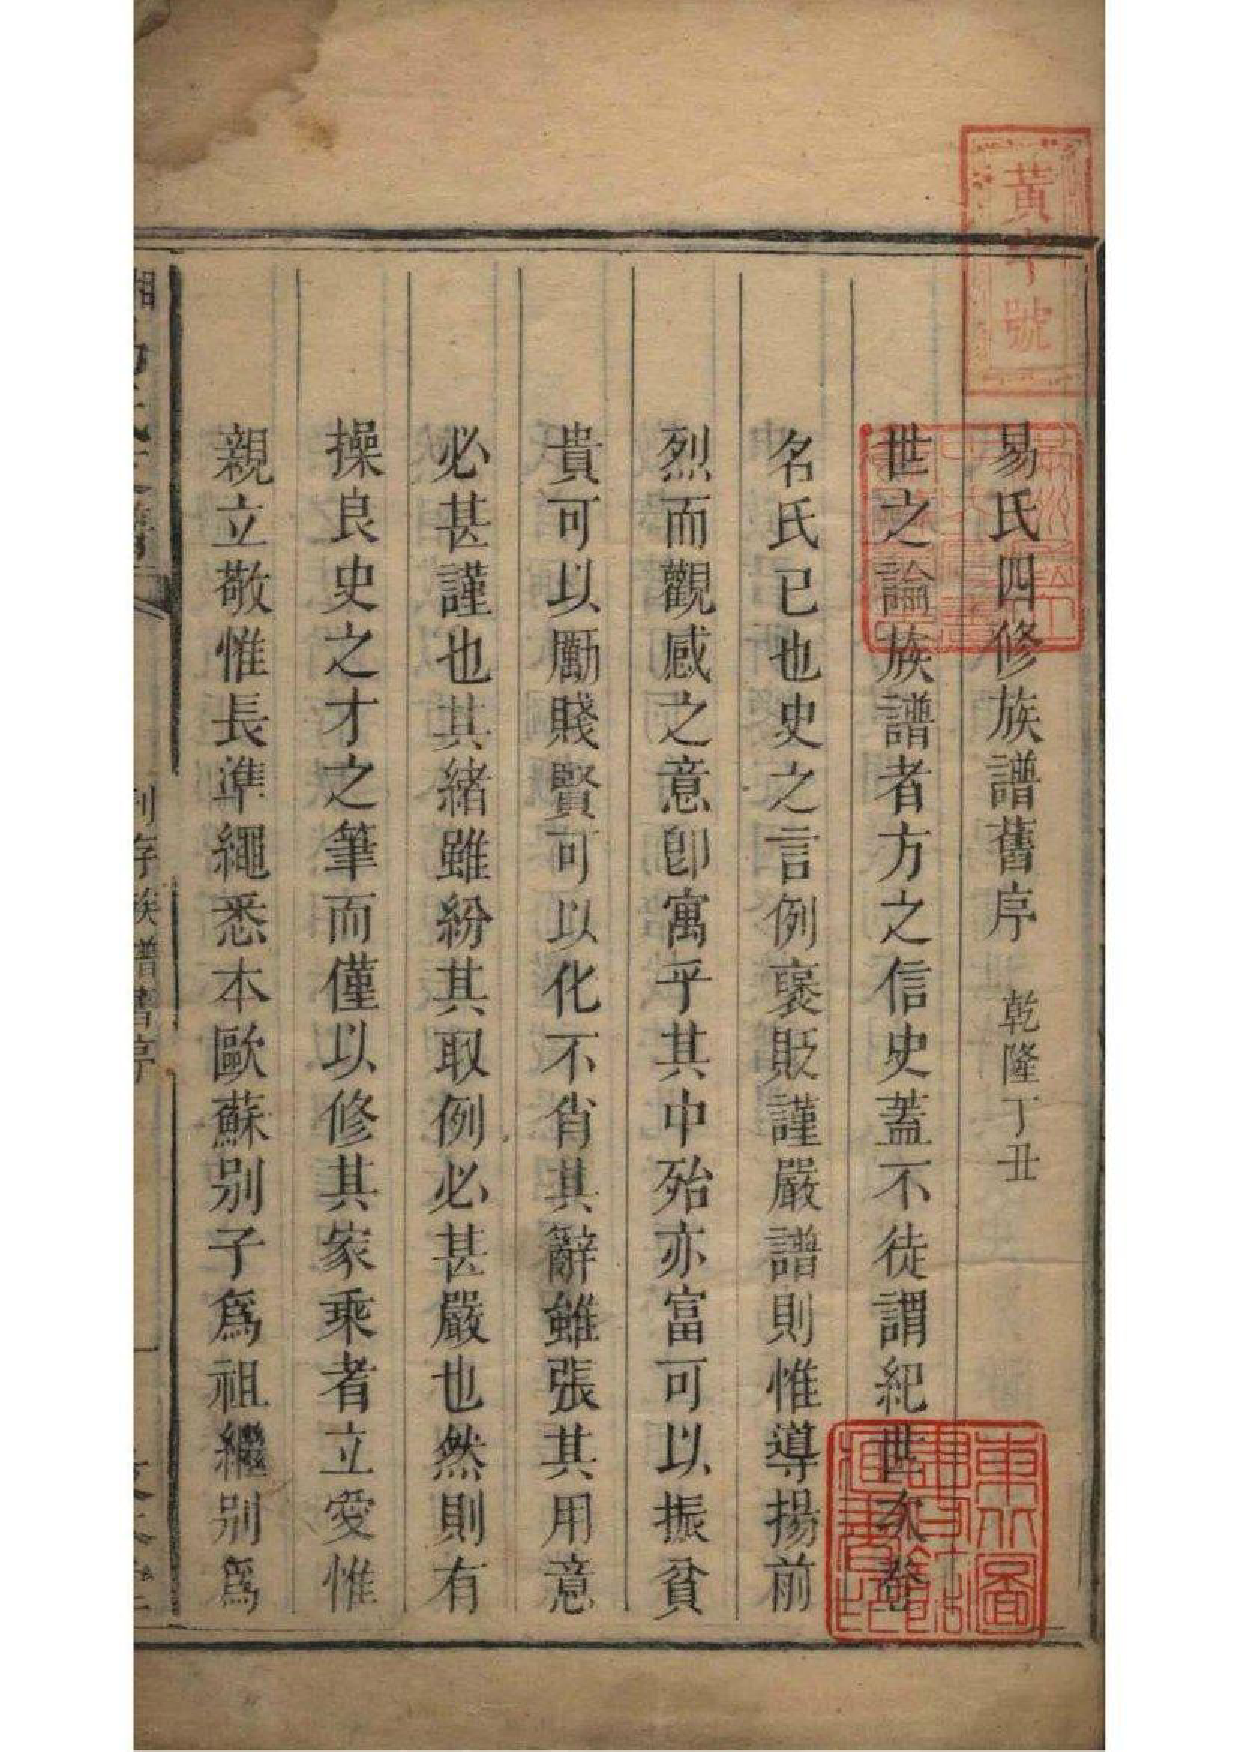 易氏四修族譜舊序 乾隆丁丑
世之論族譜者方之信史蓋不徒謂紀世次
名氏已也史之言例褒貶謹嚴譜則惟導揚前
烈而觀感之意卽寓乎其中殆亦富可以振貧
貴可以勵賤賢可以化不肖其辭雖張其用意
必甚謹也其緒雖紛其取例必甚嚴也然則有
操良史之才之筆而僅以修其家乘者立愛惟
親立敬惟長準繩悉本歐蘇别子爲祖繼别爲
黃字號